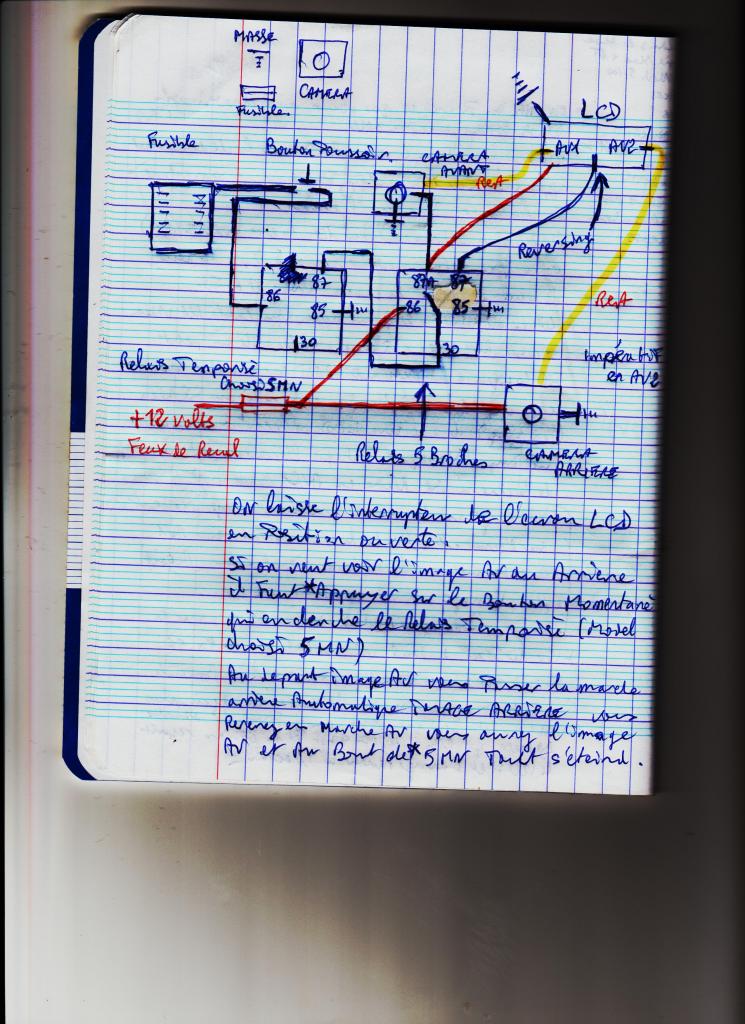 MASSE
CAMERA
Fusibles
LCD
Fusible
Bouton Poussoir
CAMERA
AVANT
RCA
AV1
AV2
Reversing
RCA
87
86
85
30
87A
87
86
85
30
Impératif
en AV2
Relais Temporisé
Choisi 5MN
+12 volts
Feux de Recul
Relais 5 Broches
CAMERA
ARRIERE
On laisse l'interrupteur de l'écran LCD
en Position ouverte.
si on veut voir l'image AV ou Arrière
il Faut *Appuyer sur le Bouton Momentané
qui enclenche le Relais Temporisé (Model
choisi 5 MN)
Au depart image AV vous Passer la marche
arrière Automatique IMAGE ARRIERE vous
Revenez en Marche AV vous aurez l'image
AV et Au Bout de *5 MN Tout s'éteind.